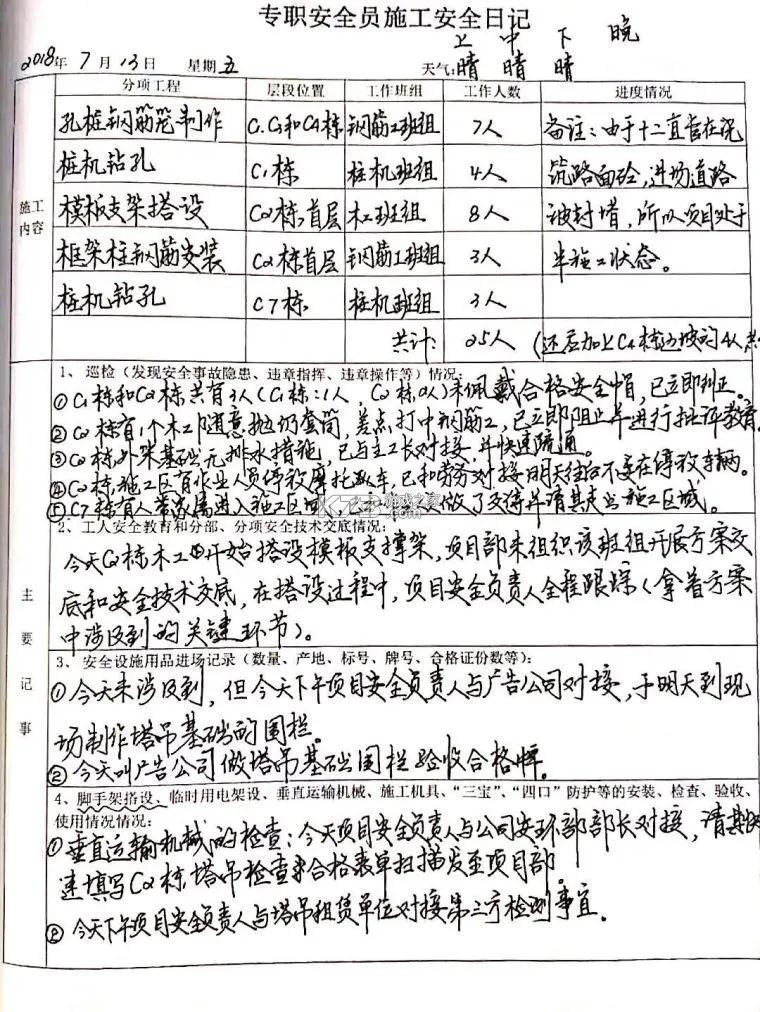 专职安全员施工安全日记
上 中 下 晚
2018年 7 月 13日 星期五 天气:晴 晴 晴
分项工程 层段位置 工作班组 工作人数 进度情况
孔桩钢筋笼制作 C1.C3和C4栋 钢筋工班组 7人 备注:由于十二直管在浇
桩机钻孔 C1栋 桩机班组 4人 筑路面砼,进场道路
施工内容 模板支架搭设 C2栋,首层 木工班组 8人 被封堵,所以项目处于
框架柱钢筋安装 C2栋首层 钢筋工班组 3人 半施工状态。
桩机钻孔 C7栋 桩机班组 3人
共计: 25人 (还后加上C4栋边坡的4人
主要记事
1、巡检(发现安全事故隐患、违章指挥、违章操作等)情况:
①C1栋和C2栋共有3人(C1栋:1人, C2栋2人)未佩戴合格安全帽,已立即纠正。
②C2栋有1个木工随意抛扔套筒,差点打中钢筋工,已立即阻止并进行批评教育
③C2栋外架基础无排水措施,已与主工长对接,并快速疏通。
④C2栋施工区有作业人员停放摩托车,已和劳务对接明天往后不要在停放车辆。
⑤C7栋有人带家属进入施工区域 做了交待并请其走出施工区域。
2、工人安全教育和分部、分项安全技术交底情况:
今天C2栋木工开始搭设模板支撑架,项目部未组织该班组开展方案交
底和安全技术交底,在搭设过程中,项目安全负责人全程跟踪(拿着方案
中涉及到的关键环节)。
3、安全设施用品进场记录(数量、产地、标号、牌号、合格证份数等):
①今天未涉及到,但今天下午项目安全负责人与广告公司对接,于明天到现
场制作塔吊基础的围栏。
②今天叫广告公司做塔吊基础围栏验收合格牌。
4、脚手架搭设、临时用电架设、垂直运输机械、施工机具、“三宝”、“四口”防护等的安装、检查、验收、
使用情况情况:
①垂直运输机械的检查:今天项目安全负责人与公司安环部部长对接,请其快
速填写C2栋塔吊检查合格表单扫描发至项目部。
②今天下午项目安全负责人与塔吊租赁单位对接第三方检测事宜.